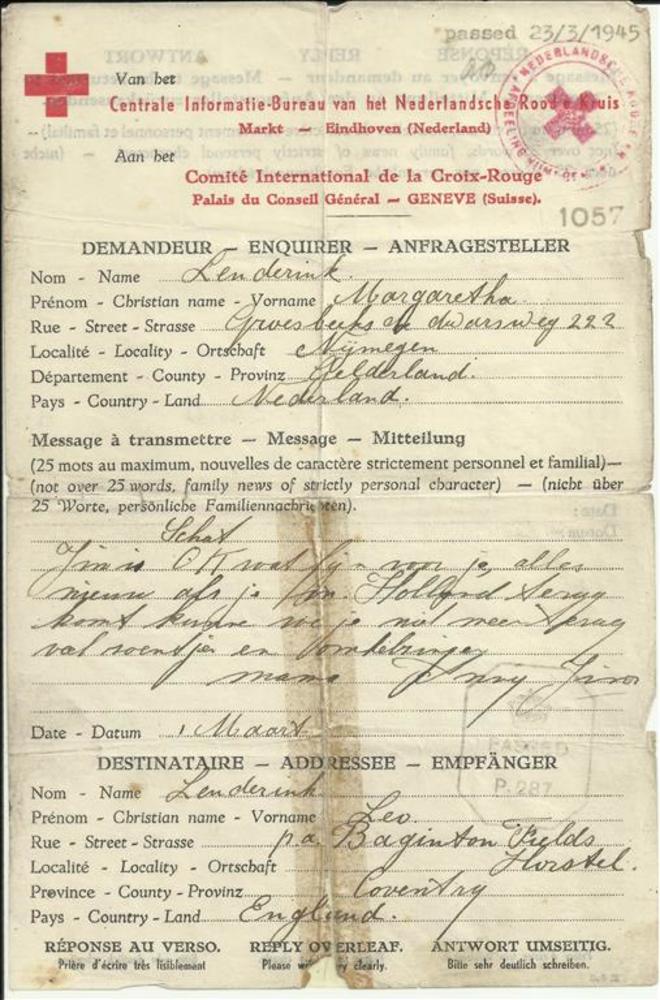 passed 23/3/1945
Van het
Centrale Informatie-Bureau van het Nederlandsche Roode Kruis
Markt — Eindhoven (Nederland)
Aan het
Comité International de la Croix-Rouge
Palais du Conseil Général — GENEVE (Suisse).
1057
DEMANDEUR — ENQUIRER — ANFRAGESTELLER
Nom - Name Lenderink.
Prénom - Christian name - Vorname Margaretha
Rue - Street - Strasse Groesbeeksche dwarsweg 222
Localité - Locality - Ortschaft Nijmegen
Département - County - Provinz Gelderland.
Pays - Country - Land Nederland.
Message à transmettre — Message — Mitteilung
(25 mots au maximum, nouvelles de caractère strictement personnel et familial)—
(not over 25 words, family news of strictly personal character) — (nicht über
25 Worte, persönliche Familiennachrichten).
Schat
is OK wat fijn voor je, alles
nieuw als je in Holland terug
komt kunne we je niet meer terug
en
mama Anny
Date - Datum 1 Maart
PASSED
P.287
DESTINATAIRE — ADDRESSEE — EMPFÄNGER
Nom - Name Lenderink
Prénom - Christian name - Vorname Leo.
Rue - Street - Strasse p.a. Baginton Fields
Hostel.
Localité - Locality - Ortschaft
Province - County - Provinz Coventry
Pays - Country - Land England.
RÉPONSE AU VERSO. REPLY OVERLEAF. ANTWORT UMSEITIG.
Prière d'écrire très lisiblement Please very clearly. Bitte sehr deutlich schreiben.